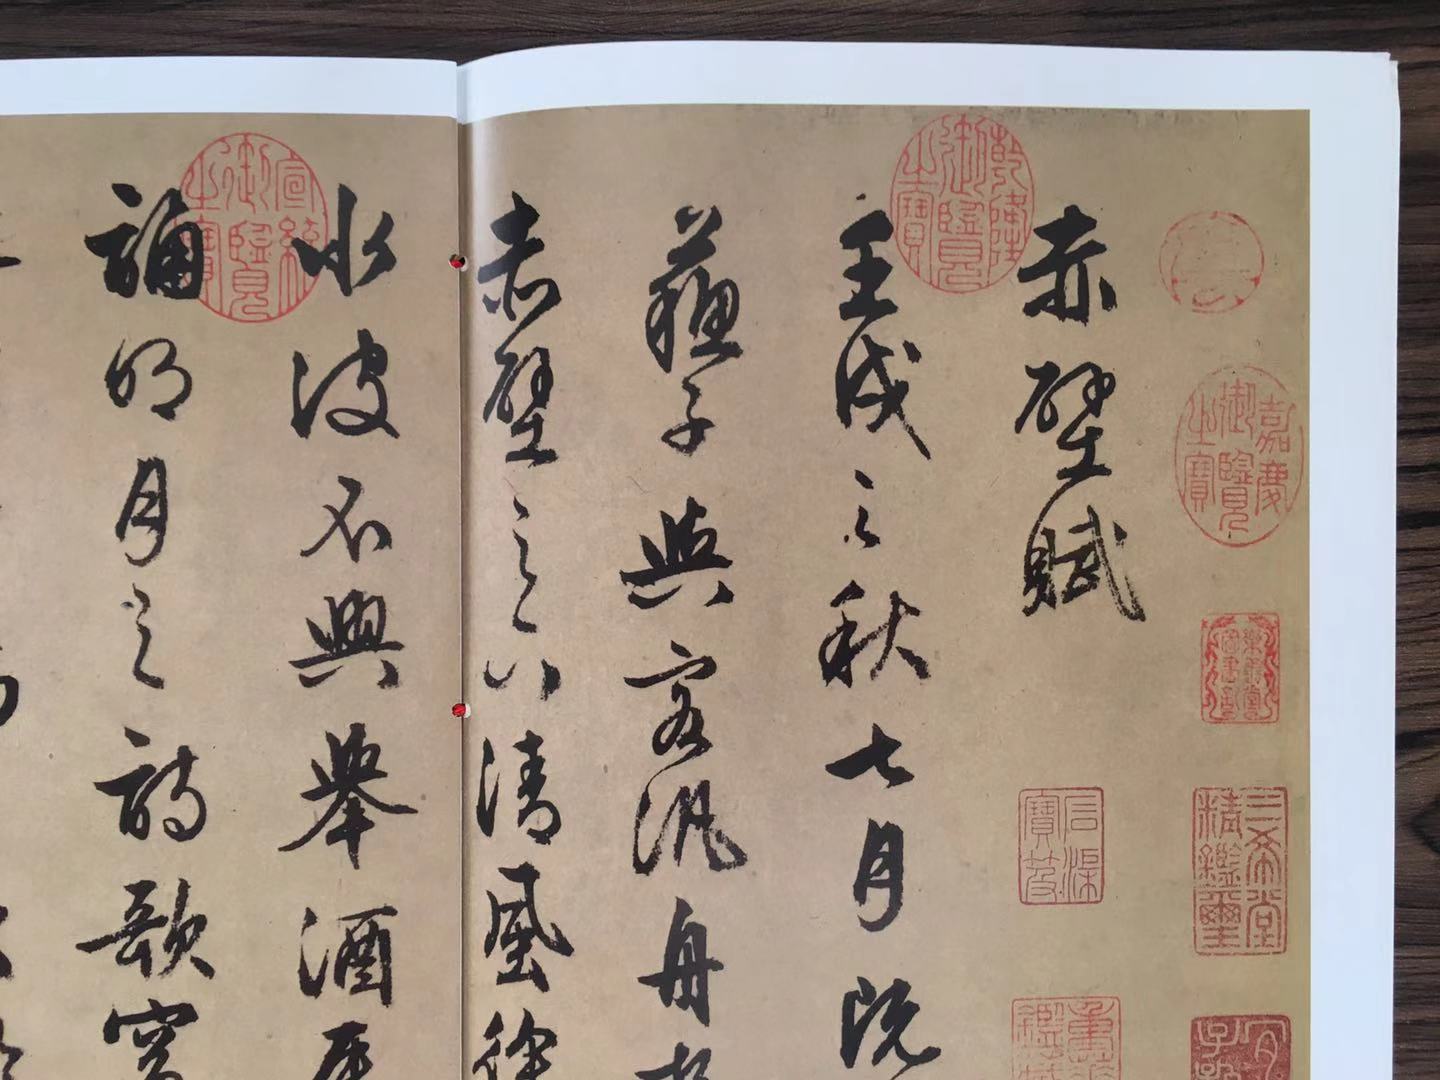 嘉慶御覽之寶
三希堂精鑑璽
宜子孫
赤壁賦
石渠寶笈
乾隆御覽之寶
壬戌之秋七月既
蘇子與客汎舟
赤壁之下清風徐
水波不興舉酒屬
宣統御覽之寶
誦明月之詩歌窈